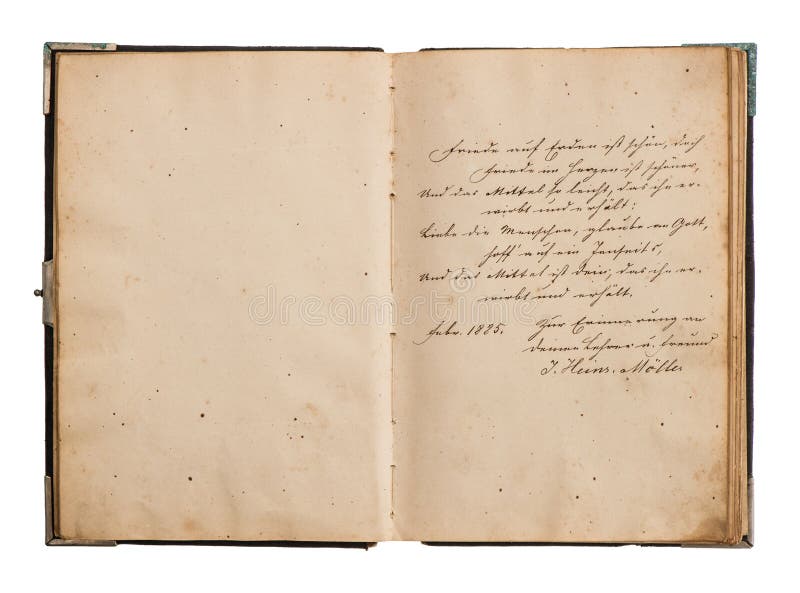 Friede auf Erden ist schön, doch
Friede im Herzen ist schöner,
Und das Mittel so leicht, das ihn er-
wirbt und erhält:
Liebe die Menschen, glaube an Gott,
hoff' auf ein Jenseits,
Und das Mittel ist dein, das ihn er-
wirbt und erhält.
Febr. 1885. Zur Erinnerung an
deinen Lehrer u. Freund
J. Heinr. Möller
dreamstime